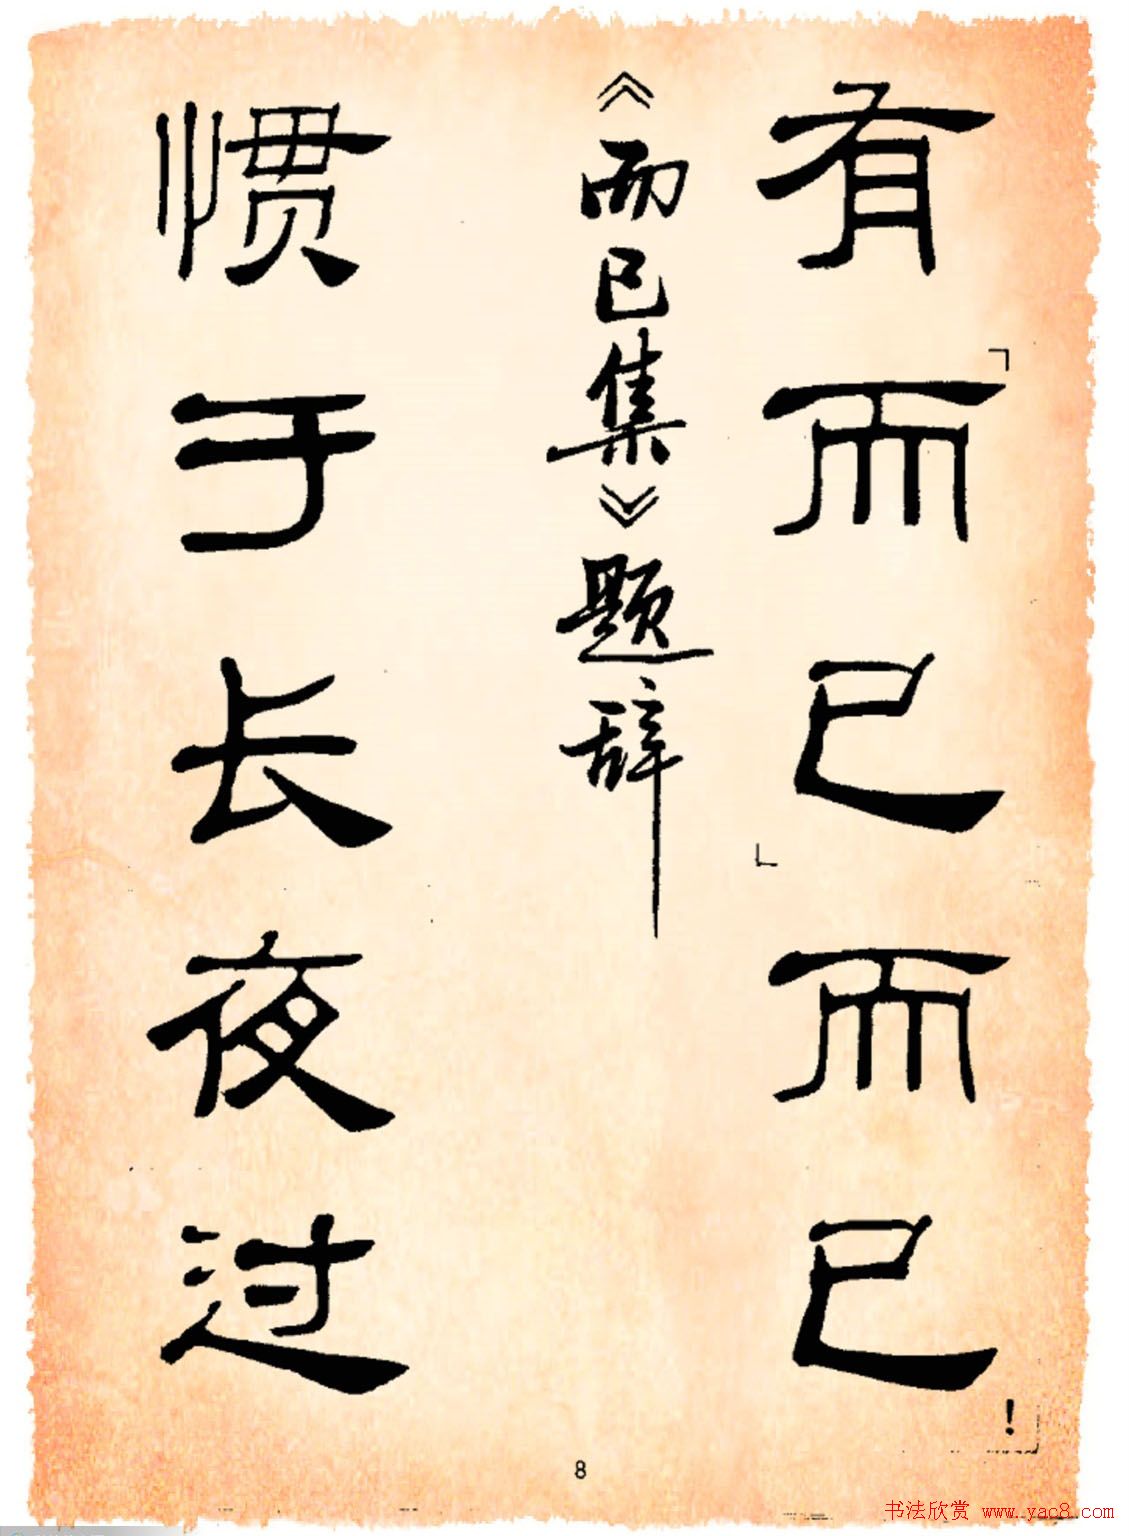 有「而已」而已！
《而已集》题辞
惯于长夜过
8
书法欣赏 www.yac8.com